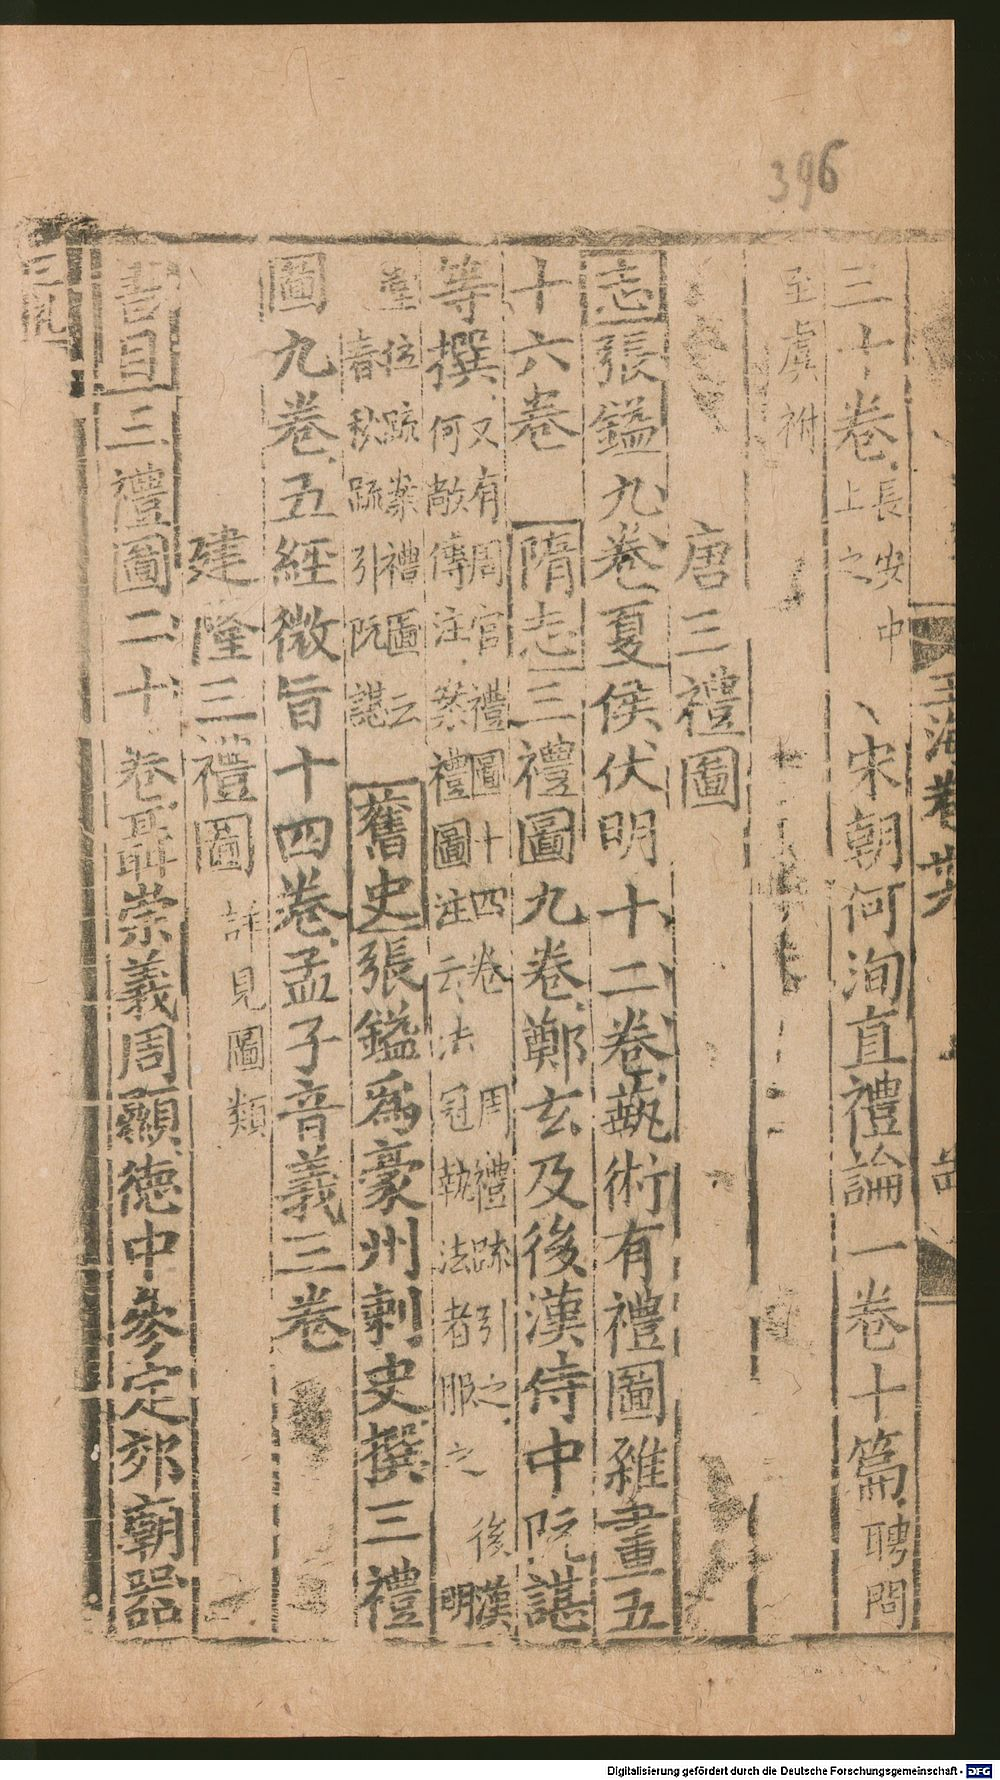 396
玉海卷
三十卷長安中上之 宋朝何洵直禮論一卷十篇聘問
至虞祔
唐三禮圖
志張鎰九卷夏侯伏明十二卷藝術有禮圖雜畫五
十六卷 隋志三禮圖九卷鄭玄及後漢侍中阮諶
等撰又有周官禮圖十四卷 周禮疏引之 後漢
何敞傳注案禮圖注云法冠執法者服之 明
堂位疏案禮圖云
春秋疏引阮諶 舊史張鎰爲豪州剌史撰三禮
圖九卷五經微旨十四卷孟子音義三卷
建隆三禮圖詳見圖類
書目三禮圖二十卷聶崇義周顯德中參定郊廟器
三礼
Digitalisierung gefördert durch die Deutsche Forschungsgemeinschaft - DFG